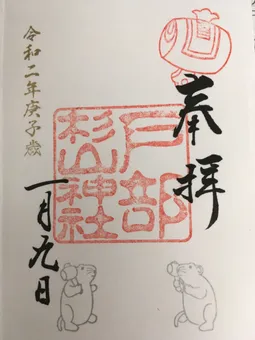 奉拝
戸部
杉山
神社
令和二年庚子歳
一月元日